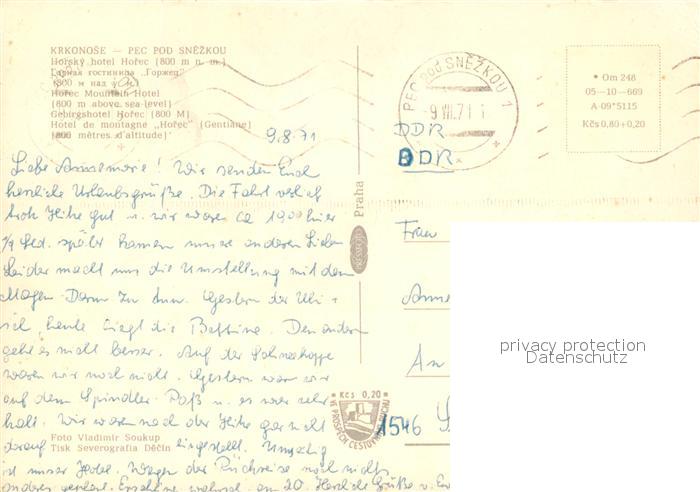 KRKONOŠE — PEC POD SNĚŽKOU
Horský hotel Hořec (800 m n. m.)
Горная гостиница „Горжец"
(800 м над ур. м.)
Hořec Mountain Hotel
(800 m above sea-level)
Gebirgshotel Hořec (800 M)
Hotel de montagne „Hořec" (Gentiane)
(800 mètres d'altitude)
PEC POD SNĚŽKOU 1
-9.VIII.71
• Om 248
05—10—669
A-09*5115
Kčs 0,80+0,20
9.8.71
DDR
DDR
Liebe Annemarie! Wir senden Euch
herzliche Urlaubsgrüße. Die Fahrt verlief
trotz Hitze gut u. wir waren ca 19.00 hier
später kamen unsere anderen Lieben
Leider macht uns die Umstellung mit dem
Magen-Darm zu tun. Gestern der Uli
heute liegt die Bettine. Den andern
geht es nicht besser. Auf der Schneekoppe
waren wir noch nicht. Gestern waren wir
auf dem Spindler-Paß u. es war sehr
kalt. Wir waren nach der Hitze gar nicht
darauf eingestellt.
ist unser Hotel. Wegen der Rückreise noch nichts
am 20. Herzliche Grüße u.
Praha
PRESSFOTO
Frau
An
1546
Kčs 0,20
VE PROSPĚCH CESTOVNÍHO RUCHU
Foto Vladimír Soukup
Tisk Severografia Děčín
privacy protection
Datenschutz